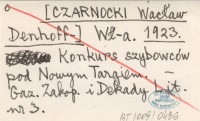 [CZARNOCKI Wacław
Denhoff-] Wł-a. 1923.
Konkurs szybowców
pod Nowym Targiem.
Gaz. Zakop. i Dekady Lit.
nr 3.
AT 10091 0486